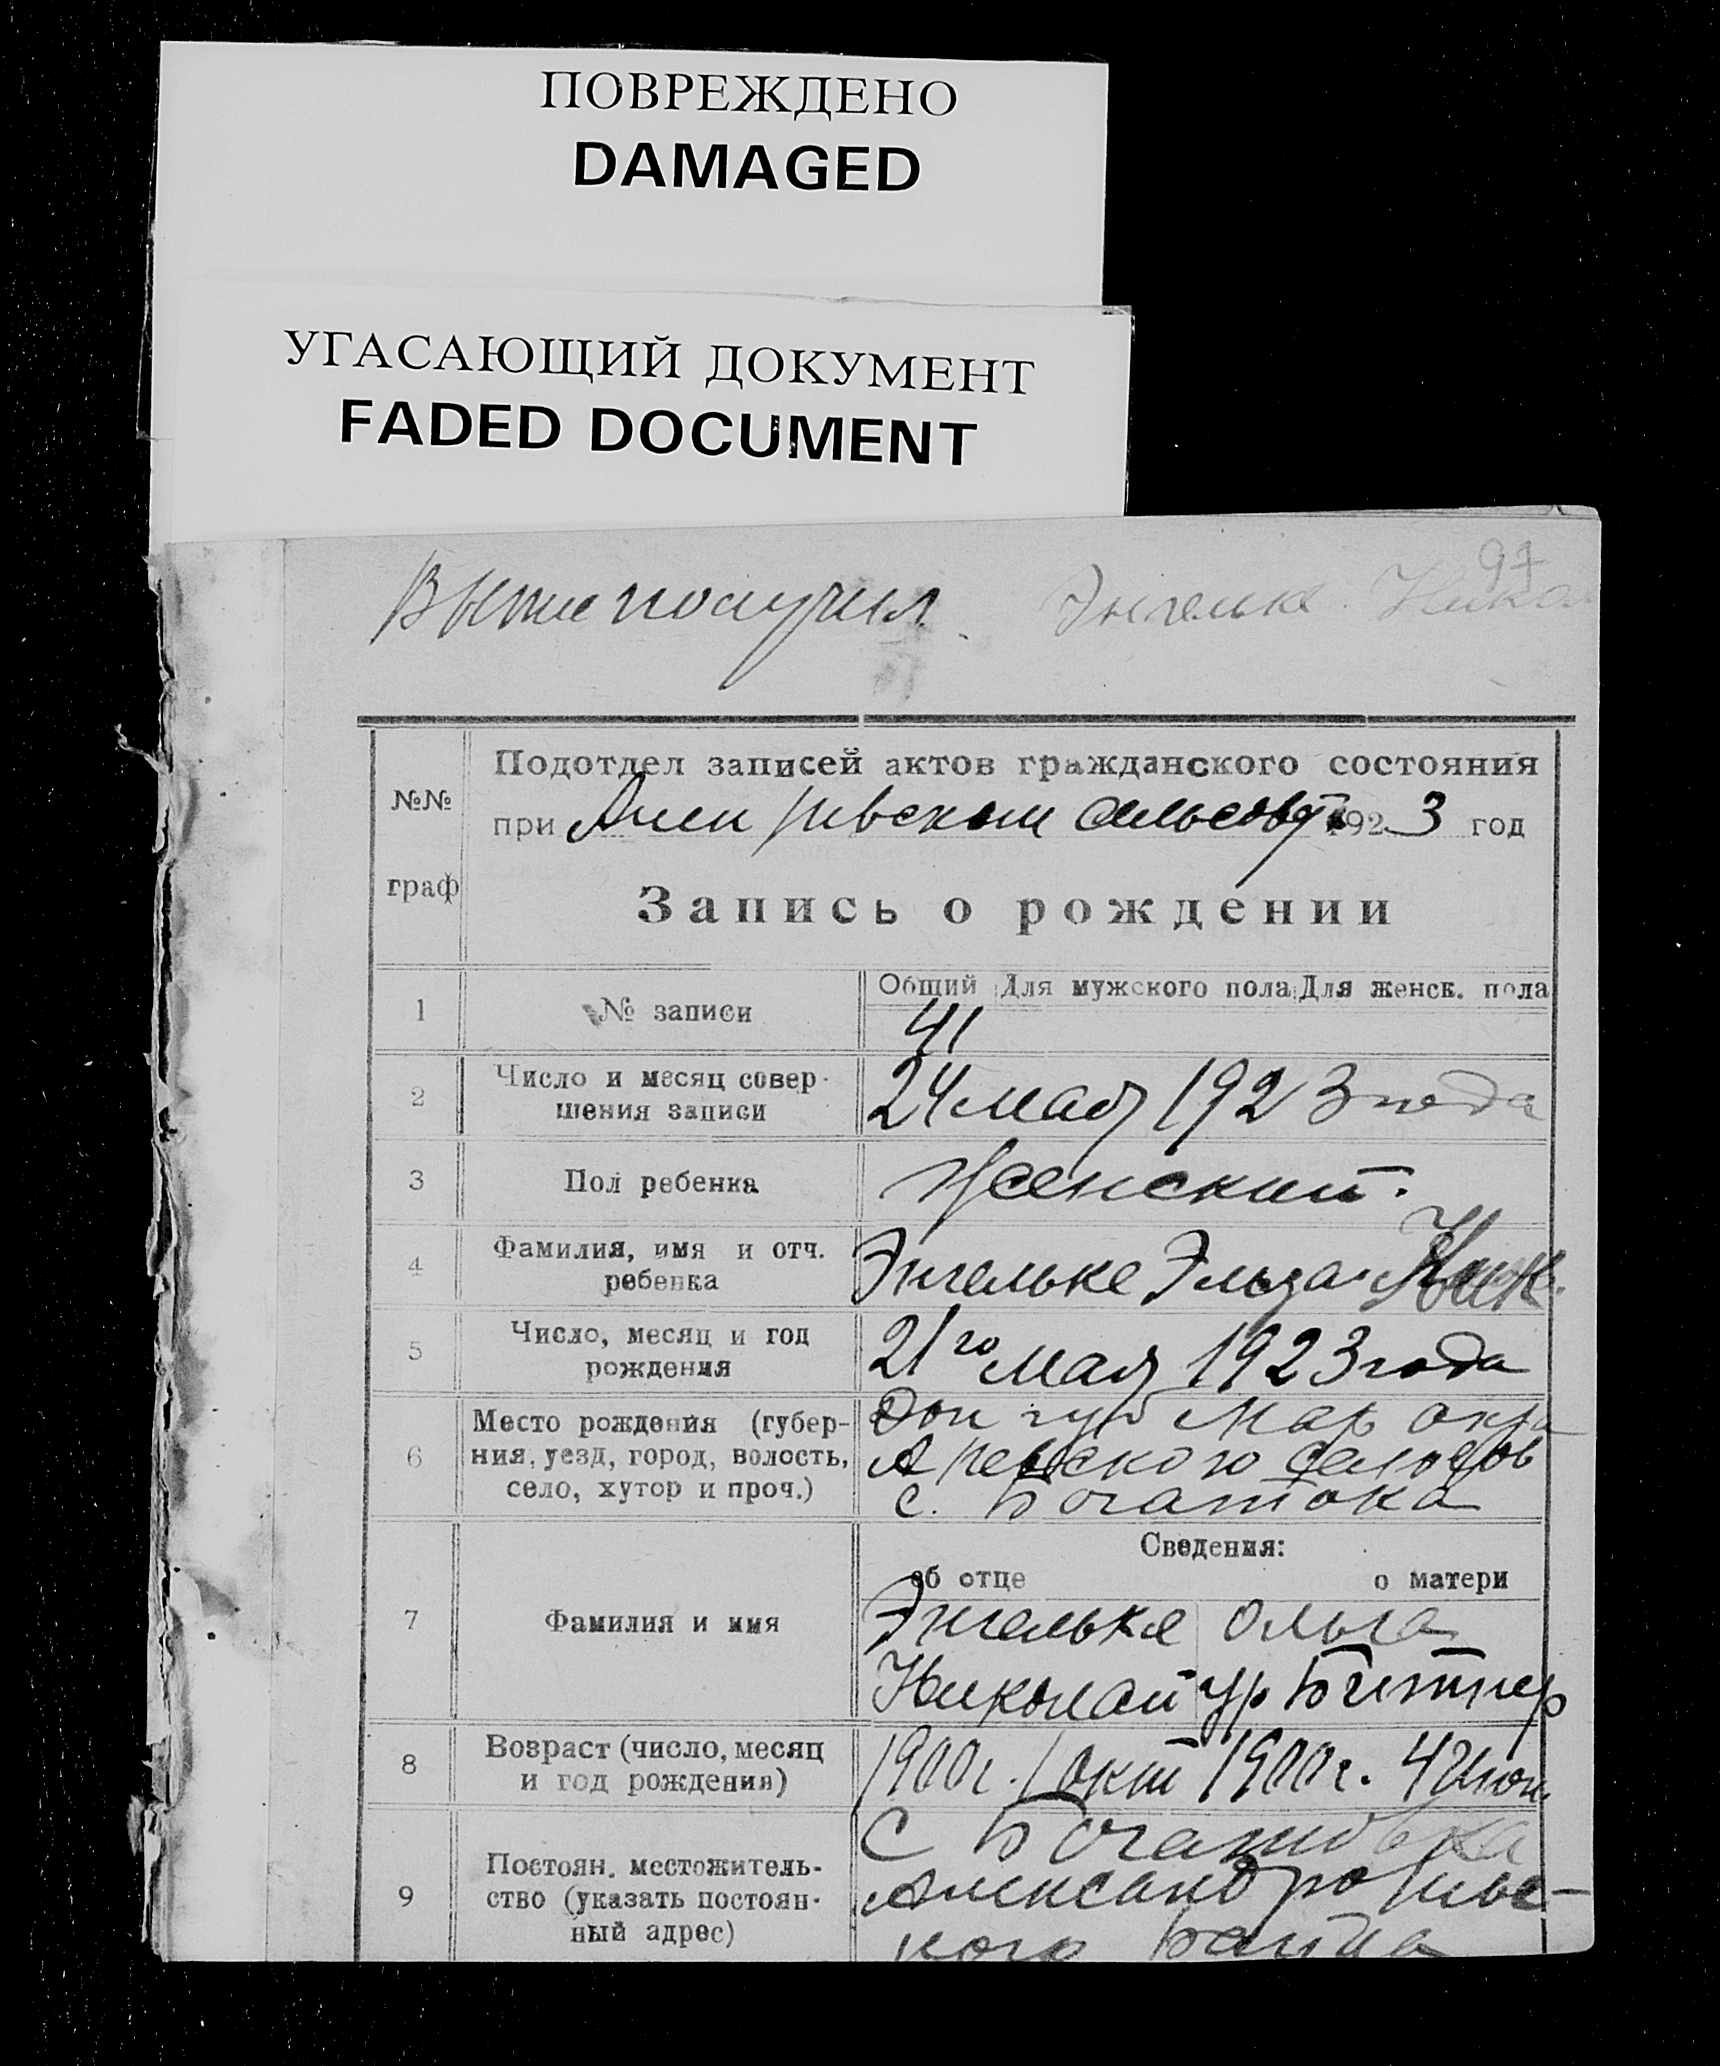 ПОВРЕЖДЕНО
DAMAGED
УГАСАЮЩИЙ ДОКУМЕНТ
FADED DOCUMENT
97
Выпис получил. Энгельке Нико
№№
граф
Подотдел записей актов гражданского состояния
при сельсовет 1923 год
Запись о рождении
Общий Для мужского пола Для женск. пола
1 № записи 41
2 Число и месяц совер-
шения записи
24 мая 1923 года
3 Пол ребенка Женский.
4 Фамилия, имя и отч.
ребенка
Энгельке Эльза Ник.
5 Число, месяц и год
рождения
21го мая 1923 года
6 Место рождения (губер-
ния, уезд, город, волость,
село, хутор и проч.)
Дон губ Мар окру
сельсов
с.
Сведения:
об отце о матери
7 Фамилия и имя
Энгельке Ольга
Николай ур Битнер
8 Возраст (число, месяц
и год рождения)
1900г. 1 окт 1900г. 4 Июн.
9 Постоян. местожитель-
ство (указать постоян-
ный адрес)
С
кого